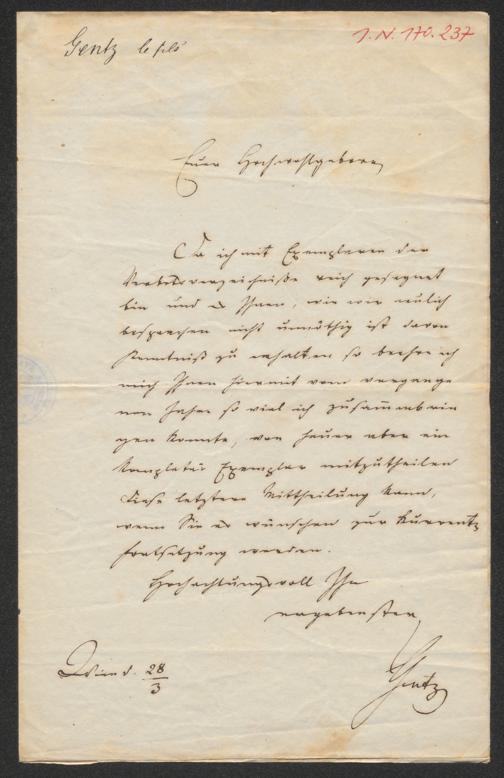 Gentz le fils
I. N. 170.237
Euer Hochwohlgeboren
Da ich mit Exemplaren der
Verbotsverzeichniße reich gesegnet
bin und es Ihnen, wie wir neulich
besprochen nicht unnöthig ist davon
Kenntniß zu erhalten so beehre ich
mich Ihnen hiermit vom vergange
nen Jahre so viel ich zusammenbrin
gen konnte, von heuer aber ein
komplettes Exemplar mitzutheilen
Diese letztere Mittheilung kann,
wenn Sie es wünschen zur Kurrent
fortsetzung werden.
Hochachtungsvoll Ihr
ergebenster
Gentz
Wien d. 28/3